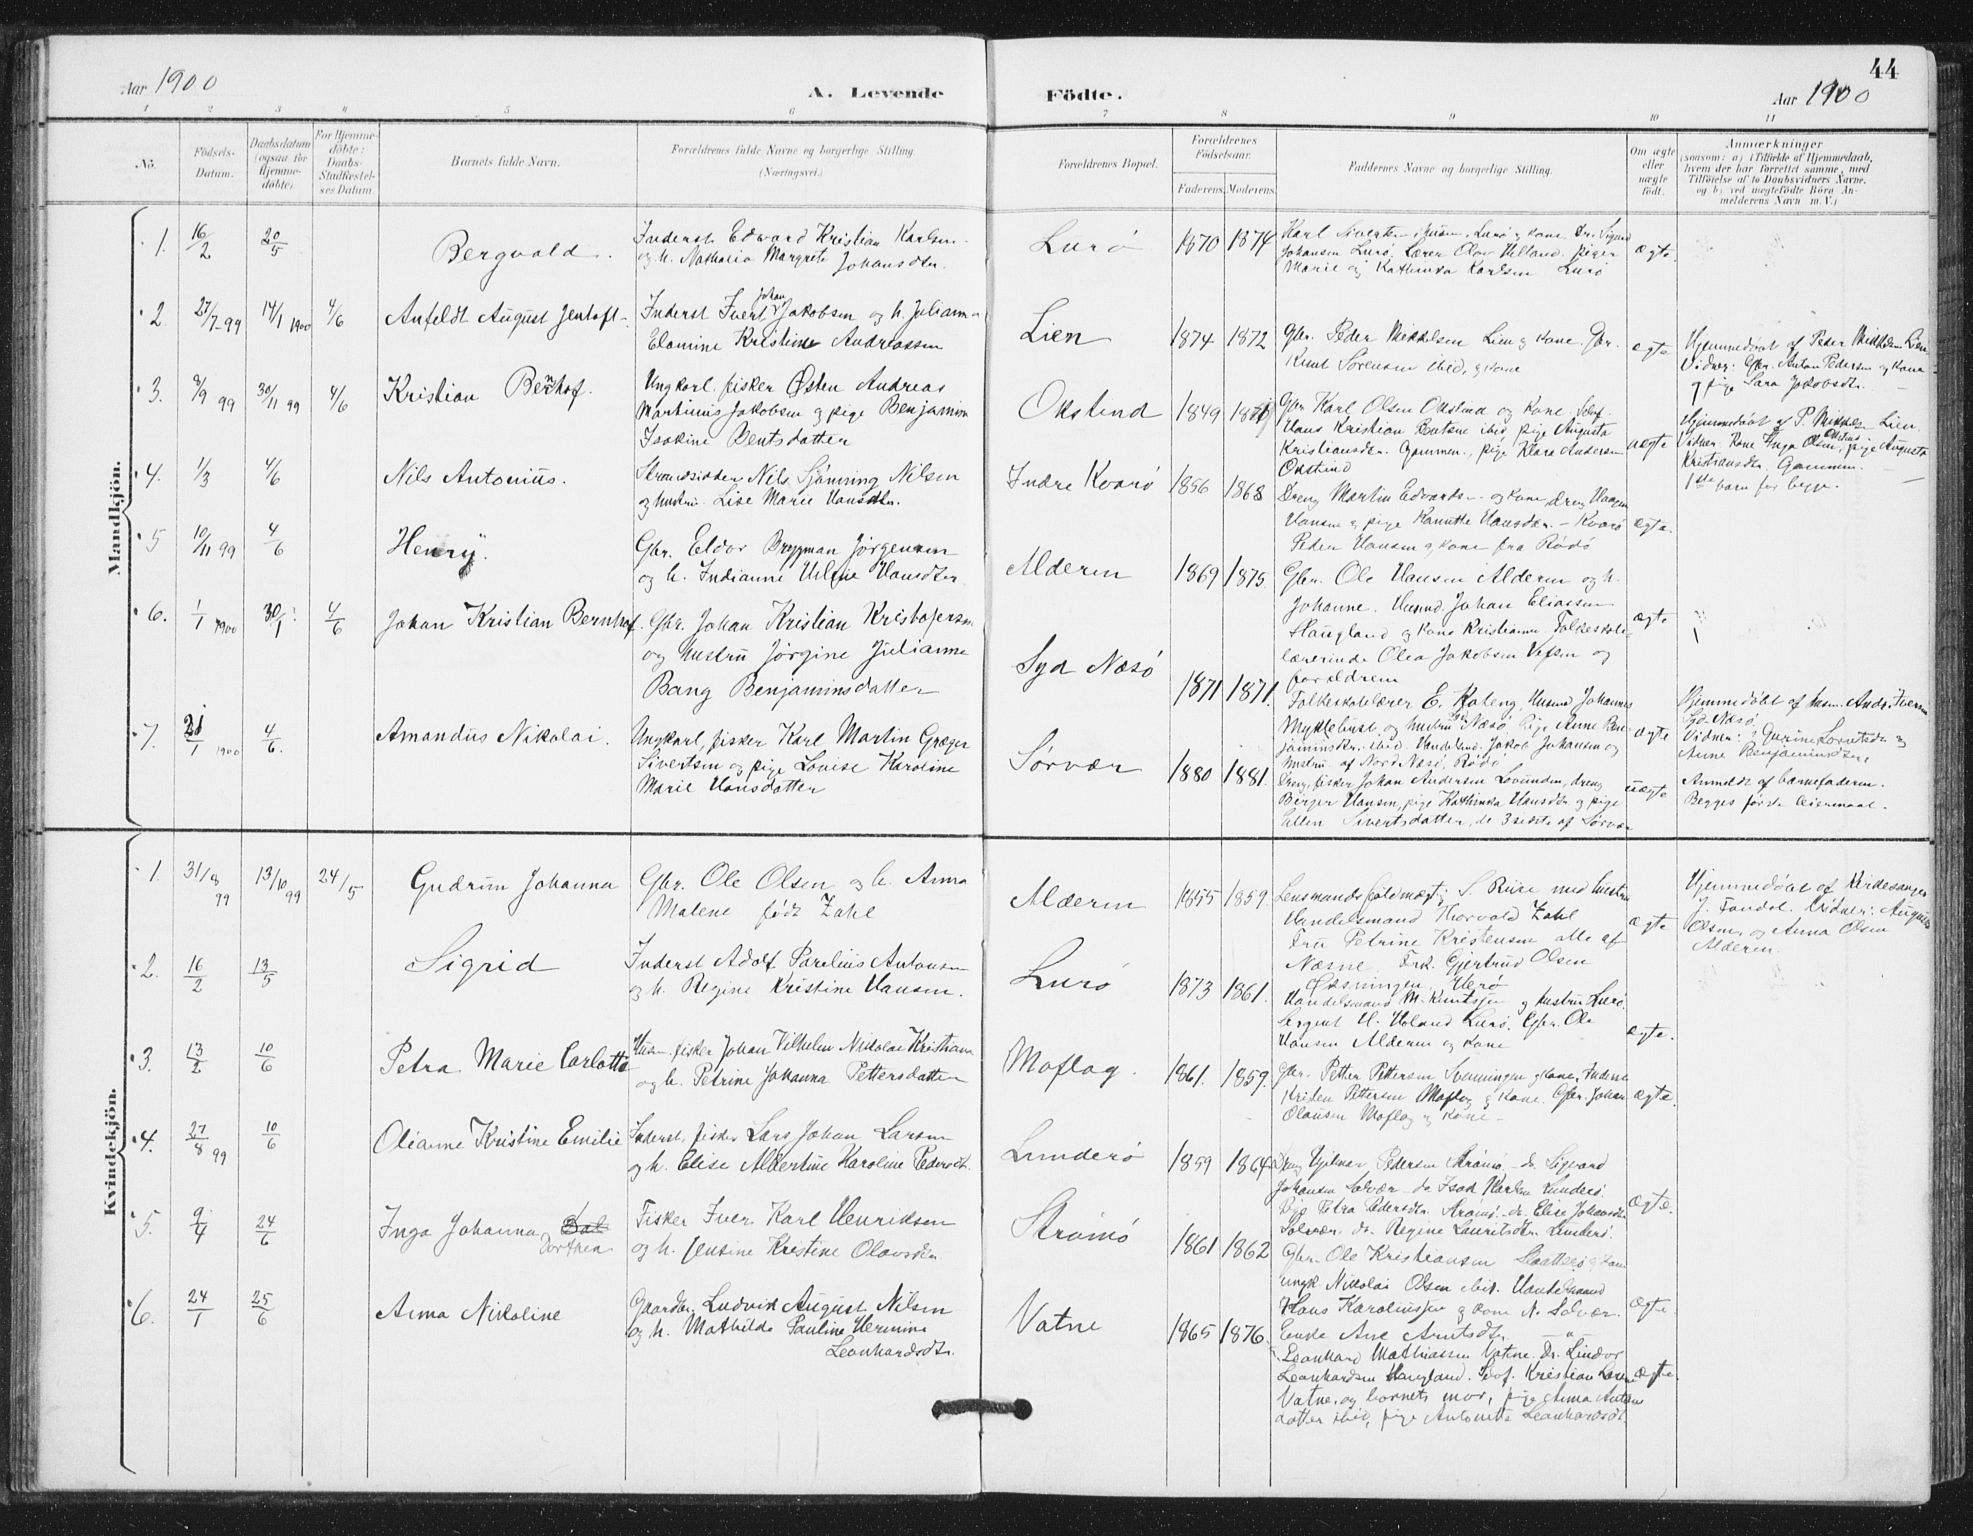 Aar 1900
A. Levende
Födte.
44
Aar 1900
1 2 3 4 5 6 7 8 9 10 11
No.
Födsels-
Datum.
Daabsdatum
(ogsaa for
Hjemme-
døbte).
For Hjemme-
döbte:
Daabs-
Stadfæstel-
ses Datum.
Barnets fulde Navn.
Forældrenes fulde Navne og borgerlige Stilling.
(Næringsvei.)
Forældrenes Bopæl.
Forældrenes
Fødselsaar.
Faderens. Moderens.
Faddernes Navne og borgerlige Stilling.
Om ægte
eller
uægte
født.
Anmærkninger
(saasom: a) i Tilfælde af Hjemmedaab,
hvem der har forrettet samme, med
Tilföielse af to Daabsvidners Navne,
og b) ved uægtefödte Börn An-
melderens Navn m. V.)
Mandkjön.
1. 16/2 20/5
Bergvald.
Inderst Edvard Kristian Karlsen
og h. Nathalia Margrete Johansdtr.
Lurö
1870 1874
Johansen Lurö, Lærer Olav Helland. piger
Marie og Kathinka Karlsen Lurö
ægte.
2 27/7-99 14/1 1900 4/6
Anfeldt August Jentoft
Inderst Ivert Johan Jakobsen og h. Julianna
Elamine Kristine Andreassen
Lien
1874 1872
Gbr. Peder Mikkelsen Lien og kone. Gbr.
Knut Sørensen ibid. og kone
ægte
Hjemmedöbt af Peder Mikkelsen Lien
Vidner: Gbr. Anton Pedersen og kone
og pige Sara Jakobsdtr.
3. 8/9 99 30/11 99 4/6
Kristian Bernhof.
Ungkarl. fisker Østen Andreas
Martinus Jakobsen og pige Benjamine
Isakine Bentsdatter
Okstind
1849
Gbr Karl Olsen Okstind og kone. Selvf.
Hans Kristian Bentsen ibid, pige Augusta
Kristiansdtr. Gammen, pige Klara Andersen
Okstind
uægte
Hjemmedöbt af P. Mikkelsen Lien.
Vidner: Kone Inga Olsen Okstind, pige Augusta
Kristiansdtr. Gammen.
1ste barn for begge.
4. 1/3 4/6
Nils Antonius.
Strandsidder Nils Sjønning Nilsen
og hustru Lise Marie Hansdtr.
Indre Kvarø
1856 1868
Dreng Martin Edvards- og kone dreng Haagen
Hansen og pige Kanutte Hansdtr. - Kvarø
Peder Hansen og kone fra Rödö
ægte.
5 10/11 99 4/6
Henry.
Gbr. Eldor Brygman Jørgensen
og h. Indianne Ulrine Hansdtr
Alderen
1869 1875
Gbr. Ole Hansen Alderen og h.
Johanne. Husmd. Johan Eliassen
Haugland og kone Kristianne. Folkeskole-
lærerinde Olea Jakobsen Vefsen og
forældrene
ægte
6. 1/1 1900 30/1 4/6
Johan Kristian Bernhof.
Gbr. Johan Kristian Kristofersen
og hustru Jørgine Julianne
Bang Benjaminsdatter
Syd Næsö
1871 1871.
Folkeskolelærer E. Kobeng, Husmd Johannes
Myklebust og hustru Syd Næsö, pige Anne Ben-
jaminsdtr. ibid. Handelsmd. Jakob Johansen og
hustru af Nord Næsö, Rödö
ægte
Syd Næsö.
Anne Benjaminsdtr.
7. 21/1 1900 4/6.
Amandus Nikolai.
Ungkarl, fisker Karl Martin Græger
Sivertsen og pige Lovise Karoline
Marie Hansdatter
Sörvær
1880 1881.
Dreng, fisker Johan Andersen Lovunden, dreng
Berger Hansen, pige Kathinka Hansdtr og pige
Ellen Sivertsdatter, de 3 sidste af Sörvær
uægte
Anmeldt af barnefaderen.
Begges første leiermaal.
Kvindekjön.
1. 31/8 99 13/10 99 24/5
Gudrun Johanna
Gbr. Ole Olsen og h. Anna
Malene født Zahl
Alderen
1855 1859.
Lensmandsfuldmægtig S. Riise med hustru
Handelsmand Thorvald Zahl
Fru Petrine Kristensen alle af
Næsne. Frk. Gjertrud Olsen
ægte
Hjemmedöbt af Kirkesanger
J. Fondal. Vidner: Augusta
Olsen og Anna Olsen
Alderen.
2. 16/2 13/5
Sigrid
Inderst Adolf Parelius Antonsen
og h. Regine Kristine Hansen.
Lurö
1873 1861.
Handelsmand M. Knutsen og hustru Lurö.
Sergent H. Haland Lurö, Gbr. Ole
Hansen Alderen og kone
ægte.
3. 13/2 10/6
Petra Marie Carlotte
Husm. fisker Johan Vilhelm Nikolai Kristiansen
og h. Petrine Johanna Pettersdatter
Moflag.
1861. 1859.
Gbr. Petter Pettersen Svenningen og kone, Inderst
Kristen Pettersen Moflag og kone. Gbr. Johan
Olausen Moflag og kone -
ægte.
4. 27/8 99 10/6
Olianne Kristine Emilie
Inderst, fisker Lars Johan Larsen
og h. Elise Albertine Karoline Pedersdtr.
Lunderö
1859 1864
Dreng Hjelmar Pedersen Strömö - dr. Sigvard
Johansen Selvær - dr. Isak Karlsen Lunderö.
Pige Petra Pedersdtr. Strömö. dr. Elise Johansdtr
Selvær. dr. Regine Lauritsdtr. Lunderö.
ægte.
5. 9/4 24/6
Inga Johanna Dorthea
Fisker Iver Karl Henriksen
og h. Jensine Kristine Olausdtr.
Strömö
1861 1862
Gbr. Ole Kristiansen Slaatterö og kone
ungk. Nikolai Olsen ibid. Handelsmand
Hans Karoliussen og kone N. Selvær.
Enke Ane Arntsdtr. - " -
ægte.
6. 24/1 25/6
Anna Nikoline
Gaardbr. Ludvik August Nilsen
og h. Mathilde Pauline Hermine
Leonhardsdtr.
Vatne
1865 1876.
Leonhard Mathiassen Vatne. Dr. Lindor
Leonhardsen Haugland. Selvf. Kristian Larsen
Vatne, og barnets mor, pige Anna Antons
datter ibid, pige Antonette Leonhardsdt.
ægte.